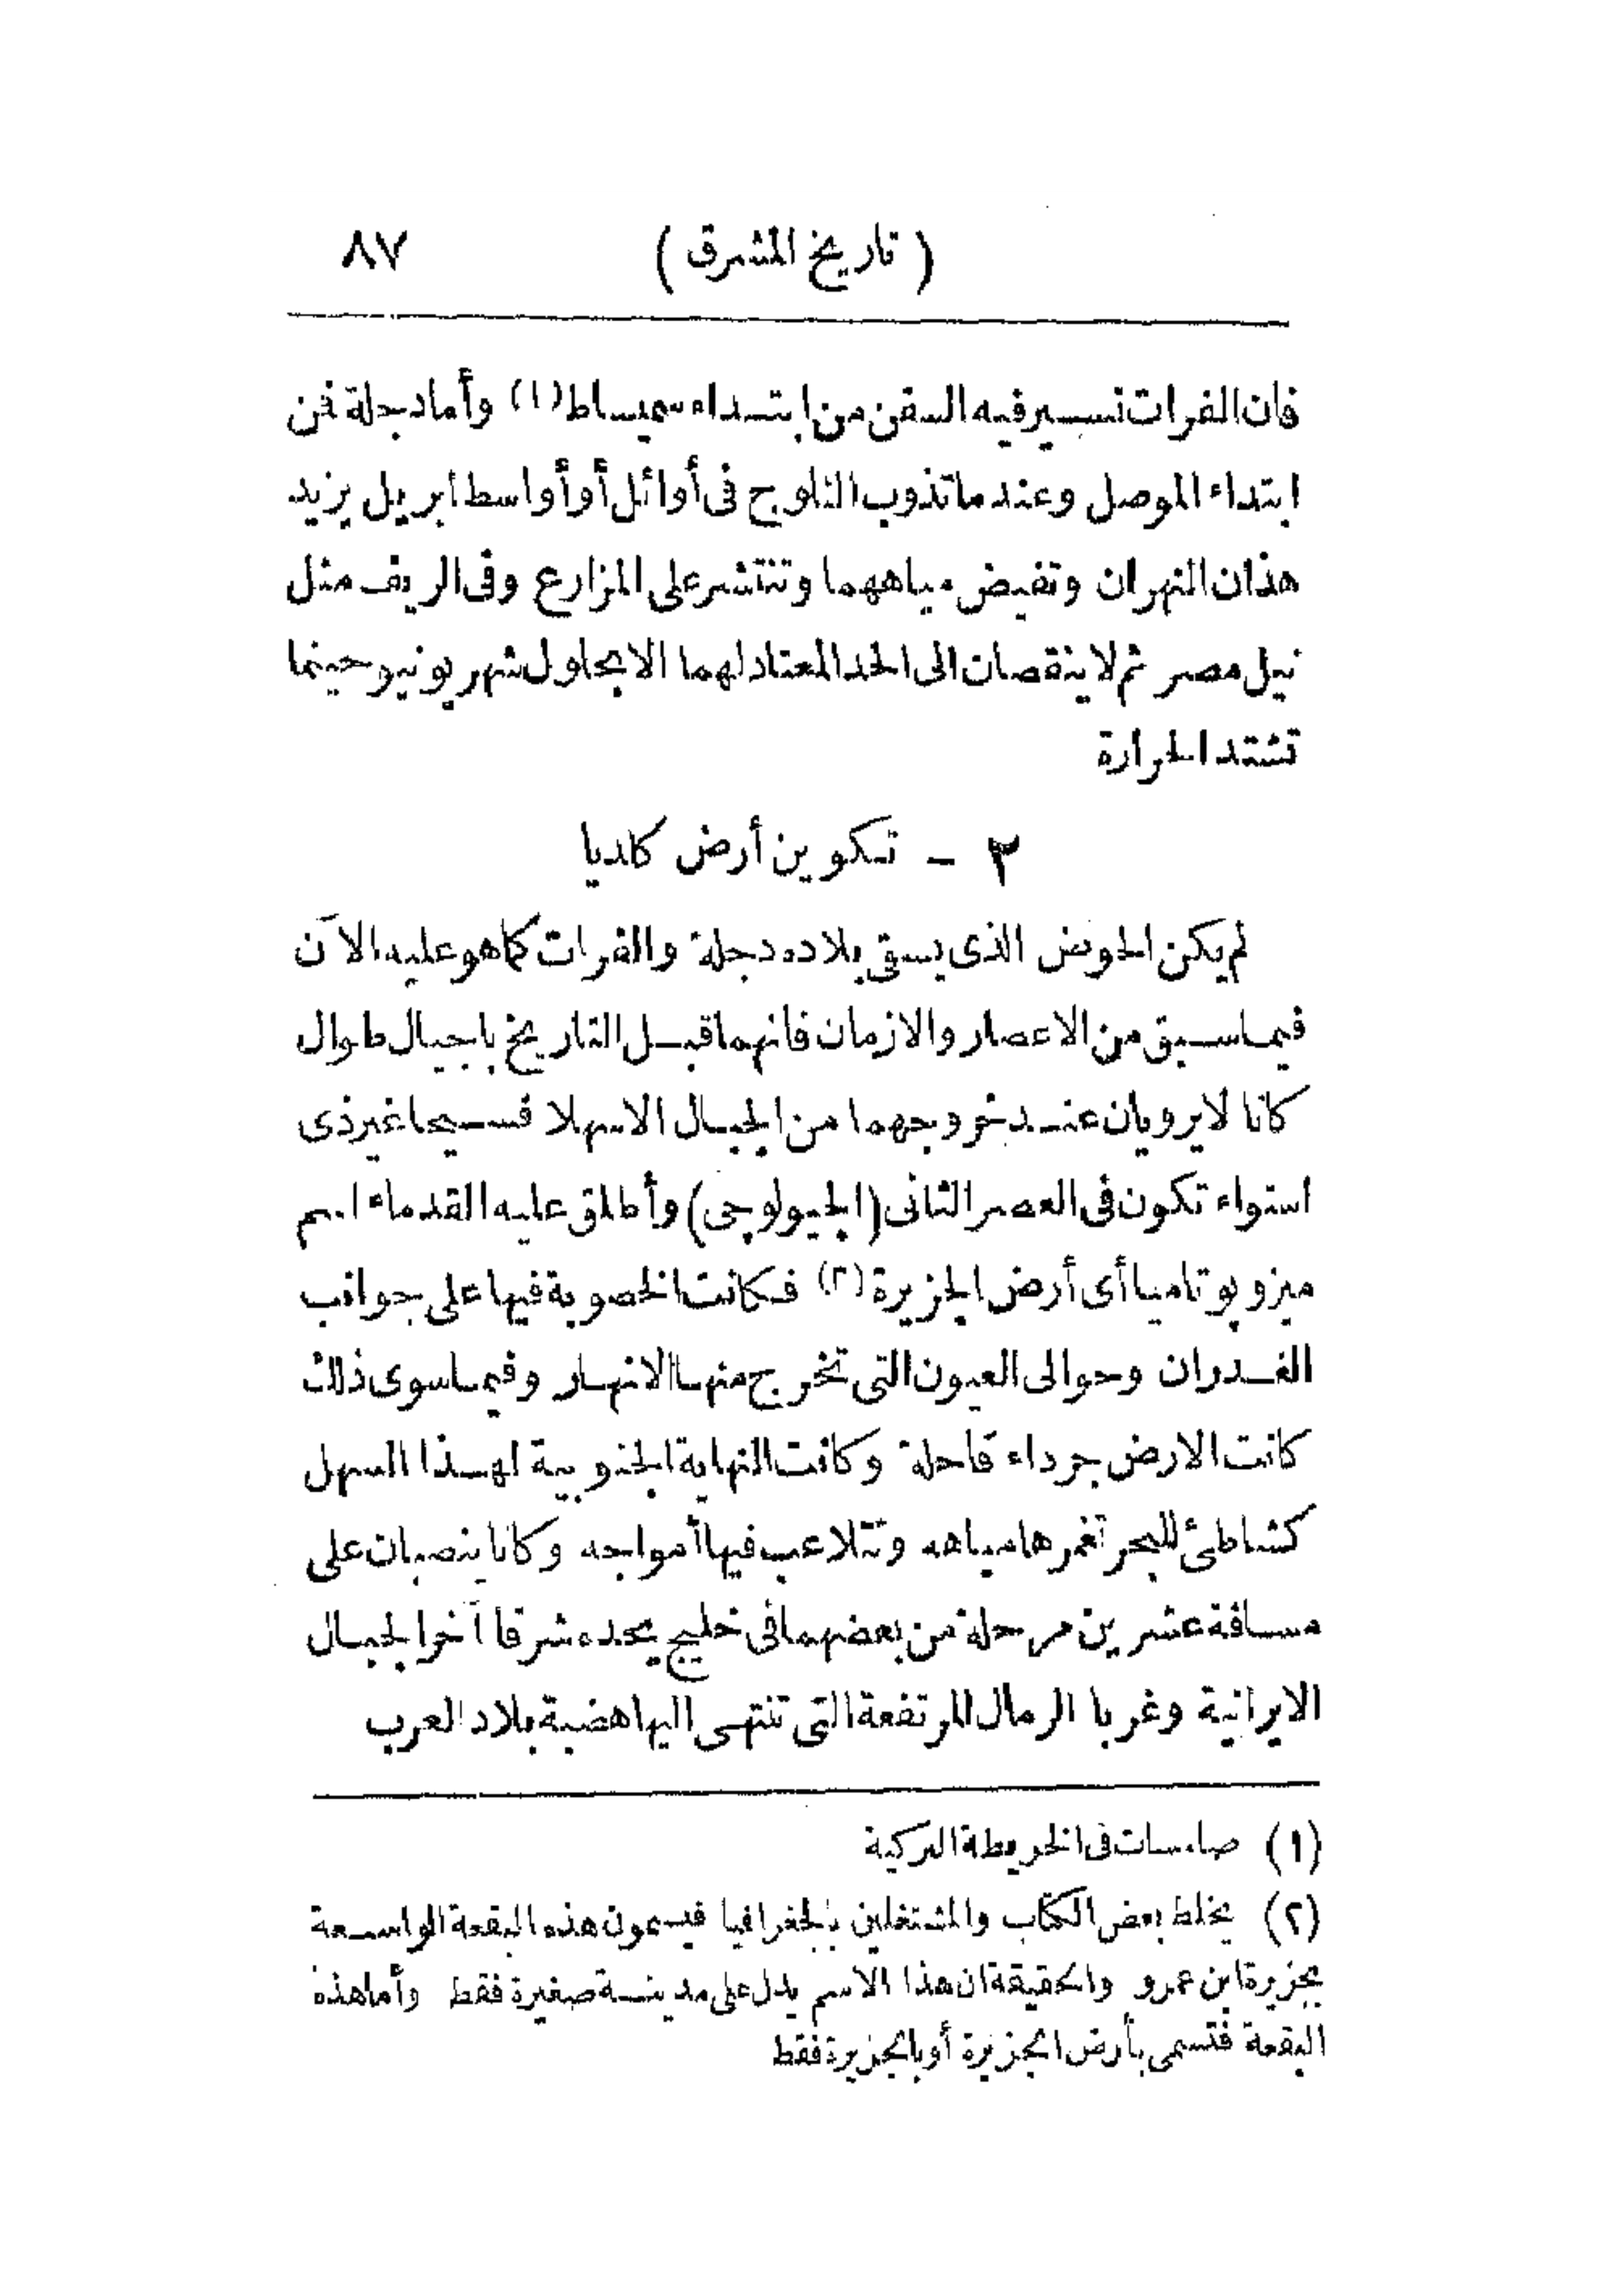 ( تاريخ المشرق ) ٨٧
فان الفرات تسير فيه السفن من ابتداء سميساط (١) وأما دجلة فمن
ابتداء الموصل وعند ما تذوب الثلوج فى أوائل أو أواسط ابريل يزيد
هذان النهران وتفيض مياههما وتنتشر على المزارع وفى الريف مثل
نيل مصر ثم لا ينقصان الى الحد المعتاد لهما الا بحلول شهر يونيو حينما
تشتد الحرارة
٣ - تكوين أرض كلديا
لم يكن الحوض الذى يسقى بلاده دجلة والفرات كما هو عليه الآن
فيما سبق من الاعصار والازمان فانهما قبل التاريخ باجيال طوال
كانا لا يرويان عند خروجهما من الجبال الا سهلا فسيحا غير ذى
استواء تكون فى العصر الثانى (الجيولوجى) وأطلق عليه القدماء اسم
ميزوپوتاميا أى أرض الجزيرة (٢) فكانت الخصوبة فيها على جوانب
الغدران وحوالى العيون التى تخرج منها الانهار وفيما سوى ذلك
كانت الارض جرداء قاحلة وكانت النهاية الجنوبية لهذا السهل
كشاطئ للبحر تغمرها مياهه وتتلاعب فيها أمواجه وكانا ينصبان على
مسافة عشرين مرحلة من بعضهما فى خليج يحده شرقا آخر الجبال
الايرانية وغربا الرمال المرتفعة التى تنتهى اليها هضبة بلاد العرب
(١) صامسات فى الخريطة التركية
(٢) يخلط بعض الكتاب والمشتغلين بالجغرافيا فيسمون هذه البقعة الواسعة
بجزيرة ابن عمرو والحقيقة ان هذا الاسم يدل على مدينة صغيرة فقط وأما هذه
البقعة فتسمى بأرض الجزيرة أو بالجزيرة فقط